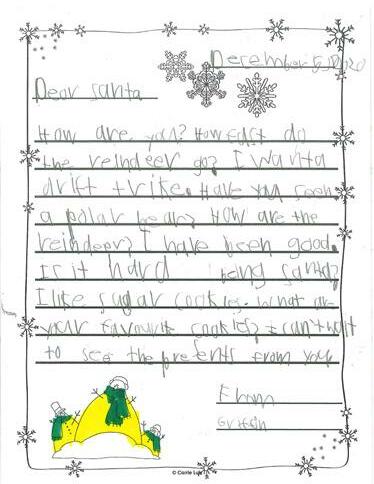 December 5, 2020
Dear Santa
How are you? How fast do
the reindeer go? I want a
drift trike. Have you seen
a polar bear? How are the
reindeer? I have been good.
Is it hard being santa?
I like sugar cookies. What are
your favourite cookies? I can't wait
to see the presents from you
From
Griffin
© Carrie